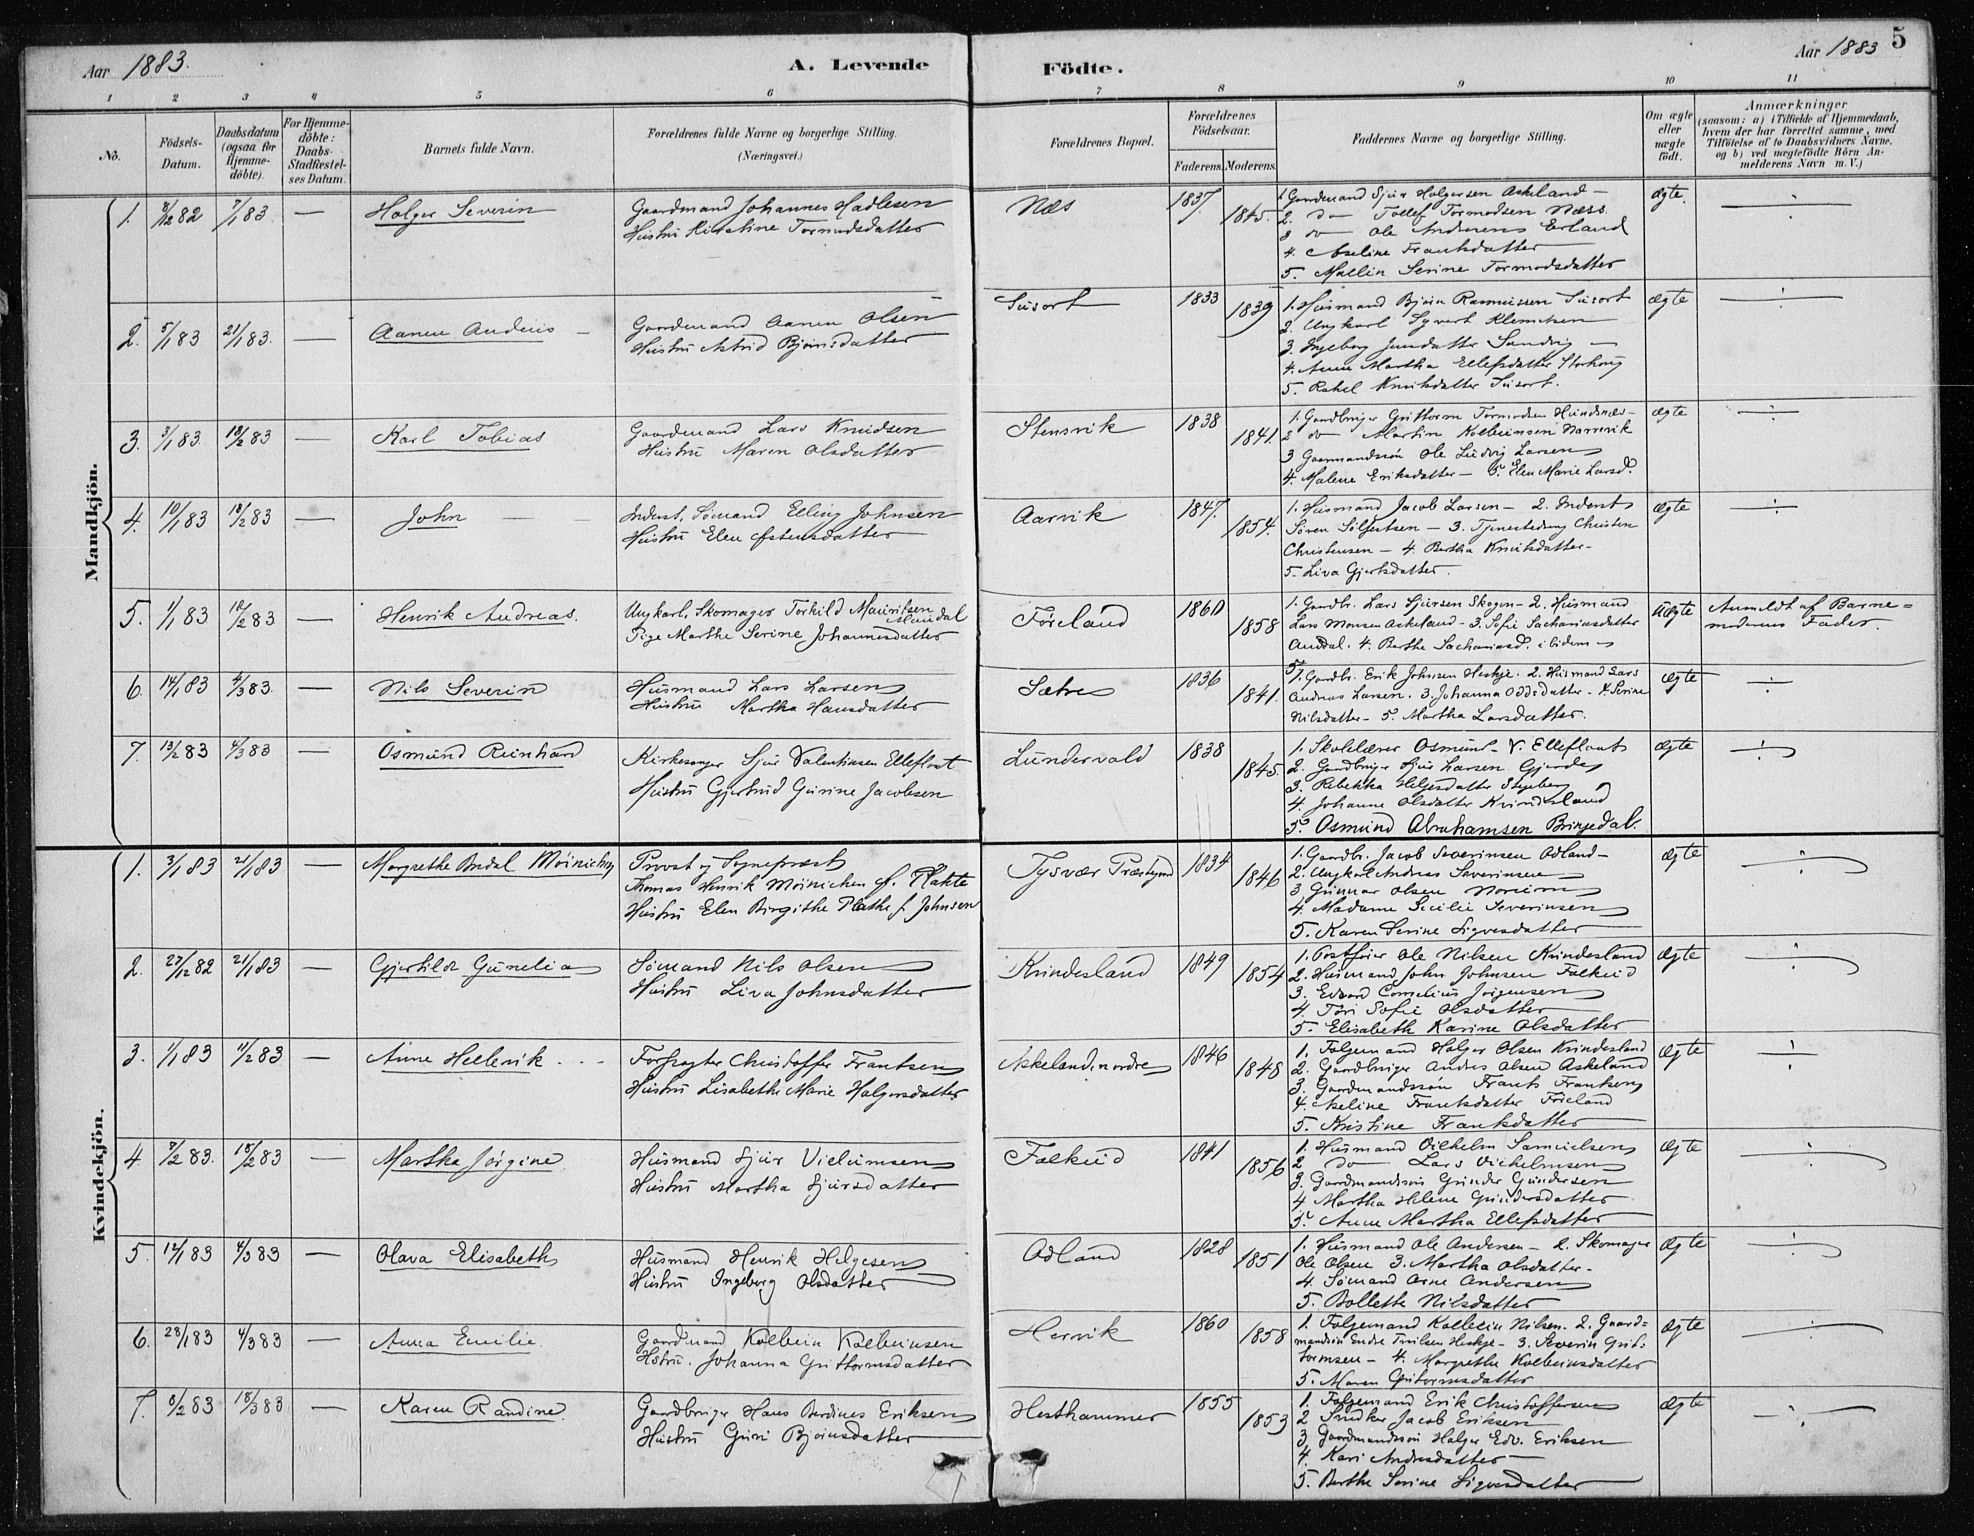 Aar 1883.
A. Levende
Födte.
Aar 1883
5
1 2 3 4 5 6 7 8 9 10 11
No.
Födsels-
Datum.
Daabsdatum
(ogsaa för
Hjemme-
döbte).
For Hjemme-
döbte:
Daabs-
Stadfæstel-
ses Datum.
Barnets fulde Navn.
Forældrenes fulde Navne og borgerlige Stilling.
(Næringsvei.)
Forældrenes Bopæl.
Forældrenes
Födselsaar.
Faderens. Moderens.
Faddernes Navne og borgerlige Stilling.
Om ægte
eller
uægte
födt.
Anmærkninger
(saasom: a) i Tilfælde af Hjemmedaab,
hvem der har forrettet samme, med
Tilföielse af to Daabsvidners Navne,
og b) ved uægtefödte Börn An-
melderens Navn m. V.)
Mandkjön.
1. 8/12 82 7/1 83 — Holger Severin
Gaardmand Johannes Hadlesen
Hustru Kirstine Tormodsdatter
Næs 1837. 1845.
1. Gaardmand Sjur Holgersen Askeland —
2. do Tollef Tormodsen Næss
3 do Ole Andersens Erland
4. Aseline Frantsdatter
5. Mallin Serine Tormodsdatter
Ægte.
2. 5/1 83 21/1 83. — Aanen Andeus
Gaardmand Aanen Olsen
Hustru Astrid Bjørnsdatter
Susort 1833 1839
1. Husmand Bjørn Rasmussen Susort
2. Ungkarl Syvert Klemetsen
3. Ingeborg Jensdatter Sandvig —
4. Anne Martha Ellefsdatter Storhoug
5. Rakel Knutsdatter Susort.
Ægte
3. 3/1 83. 18/2 83 — Karl Tobias
Gaardmand Lars Knudsen
Hustru Maren Olsdatter
Stensvik 1838 1841.
1. Gaardbruger Guttorm Tormodsen Hundsnæs —
2 do Martin Kolbeinsen Narrevik
3 Gaarmandssön Ole Ludvig Larsen
4. Malene Eriksdatter — 5. Elen Marie Larsd.
Ægte
4. 10/1 83 18/2 83 — John
Inderst, Sømand Elling Johnsen
Hustru Elen Østensdatter
Aarvik 1847. 1854.
1. Husmand Jacob Larsen — 2. Inderst
Sören Sölfestsen — 3. Tjenestedreng Christen
Christensen — 4. Bertha Knutsdatter —
5. Liva Gjertsdatter.
Ægte
5. 1/1 83 18/2 83 — Henrik Andreas.
Ungkarl. Skomager Torkild Mauritsen
Mandal
Pige Marthe Serine Johannesdatter
Föreland 1860 1858
1. Gaardbr. Lars Sjursen Skogen — 2. Husmand
Lars Monsen Askeland — 3. Sofie Sachariasdatter
Anddal. 4. Berthe Sachariasd. ibidem
Uægte
Anmeldt af Barne=
moderens Fader.
6. 14/1 83 4/3 83. — Nils Severin
Husmand Lars Larsen
Hustru Martha Hansdatter
Sætre 1836 1841.
1. Gaardbr. Erik Johnsen Heskje. 2. Husmand Lars
Andreas Larsen. 3. Johanna Oddsdatter — 4. Serine
Nilsdatter — 5. Martha Larsdatter.
Ægte
7. 13/2 83 4/3 83. — Osmund Reinhard
Kirkesanger Sjur Valentinsen Ellefloat
Hustru Gjertrud Gurine Jacobsen
Lundervold 1838 1845.
1. Skolelærer Osmund V. Ellefloat
2. Gaardbruger Sjur Larsen Gjerde
3. Rebekka Helgesdatter
4. Johanne Olsdatter Kvindesland
5. Osmund Abrahamsen Bringedal.
Ægte
Kvindekjön.
1. 3/1 83 21/1 83 — Margrethe Bredal Möinichen
Provst og Sogneprest
Thomas Henrik Möinichen f. Plahte
Hustru Elen Birgithe Plathe f. Johnsen
Tysvær Præstegaard 1834 1846
1. Gaardbr. Jacob Severinsen Odland —
2. Ungkarl Andreas Severinsen
3 Gunnar Olsen
4. Madame Sicilie Severinsen
5. Karen Serine Sigvesdatter
Ægte
2. 27/12 82 21/1 83 — Gjertilde Gunelia
Sømand Nils Olsen
Hustru Liva Johnsdatter
Kvindesland 1849 1854
1. Postförer Ole Nilsen Kvindesland
2. Husmand John Johnsen Falkeid
3. Edvard Cornelius Jörgensen
4. Töri Sofie Olsdatter
5. Elisabeth Karine Olsdatter
Ægte
3. 1/1 83 11/2 83 — Anne Hellerik
Forpagter Christoffer Frantsen
Hustru Lisabethe Marie Holgersdatter
Askeland, nordre 1846 1848
1. Folgemand Holger Olsen Kvindesland
2. Gaardbruger Andres Olsen Askeland
3. Gaardmandssön Frants Frantsen
4. Aseline Frantsdatter
5. Kristine Frantsdatter
Ægte
4 7/2 83. 18/2 83 — Martha Jörgine
Husmand Sjur Vielumsen
Hustru Martha Sjursdatter
Falkeid 1841 1856
1. Husmand Vilhelm Samuelsen
2 do Lars Vilhelmsen
3. Gaardmandssön Gunder Gundersen
4 Martha Helene Gundersdatter
5. Anne Martha Ellefsdatter
Ægte
5 14/1 83 4/3 83 — Olava Elisabeth
Husmand Henrik Helgesen
Hustru Ingeborg Olsdatter
Odland 1828 1851
1. Husmand Ole Andersen — 2. Skomager
Ole Olsen 3. Martha Olsdatter —
4. Sømand Arne Andersen
5. Bollette Nilsdatter
Ægte
6. 28/1 83 4/3 83 — Anna Emilie
Gaardmand Kolbein Kolbeinsen
Hstru. Johanna Guttormsdatter
Hervik 1860 1858
1. Folgemand Kolbein Nilsen. 2. Gaard=
mandssön Endre Heskje — 3. Severin Gut:
tormsen — 4. Margrethe Kolbeinsdatter
5. Maren Guttormsdatter
Ægte
7. 6/2 83 18/3 83 — Karen Randine.
Gaardbruger Hans Berdines Eriksen
Hustru Guri Bjørnsdatter
Hesthammer 1855 1853
1. Folgemand Erik Christoffersen
2 Snedker Jacob Eriksen
3 Gaardmandssön Holger Edv. Eriksen
4. Kari Andresdatter
5. Berthe Serine Sigvesdatter
Ægte